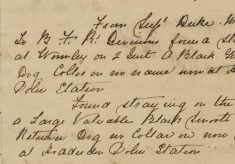 From Supt Duke
To B. F. R. Divisions found a
at Wormley on 2 Inst A Black
Dog Collar on no name now at
Police Station
Found straying on the
a Large Valuable Black Smooth
Retriever Dog no Collar on now
at Hoddesdon Police Station